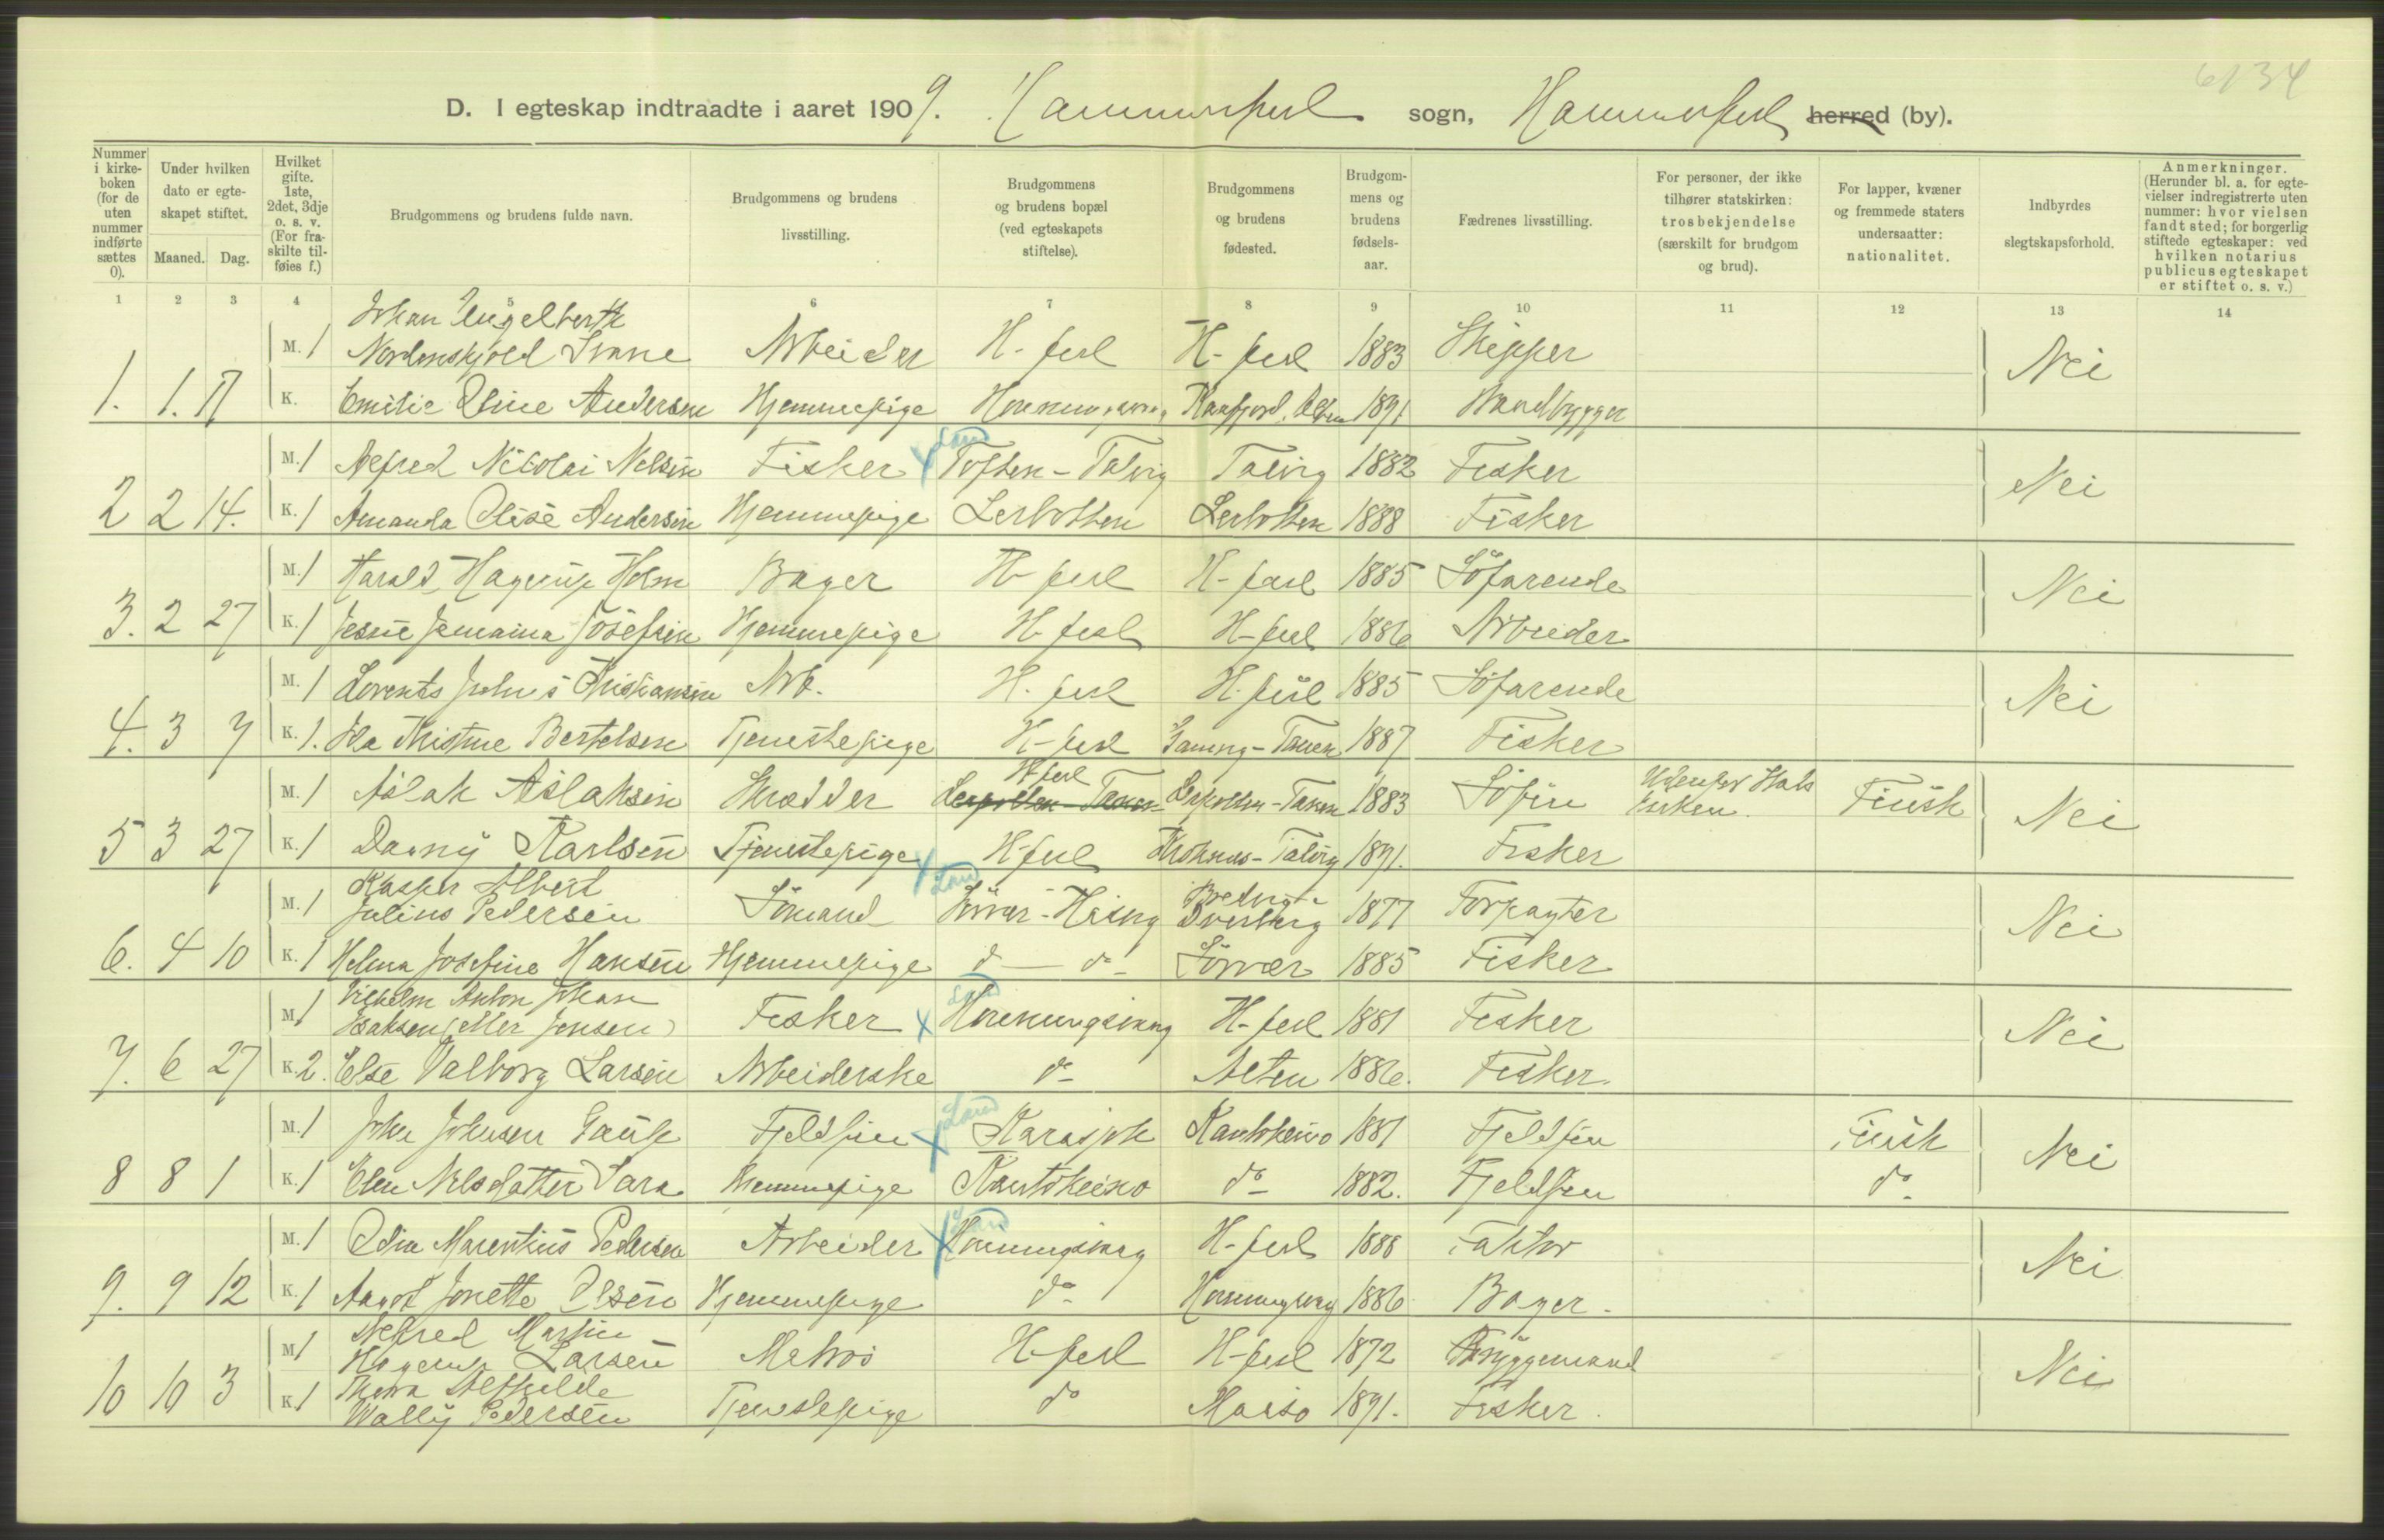 6134
D. I egteskap indtraadte i aaret 1909. Hammerfest sogn, Hammerfest herred (by).
Nummer i kirkeboken (for de uten nummer indførte sættes 0).
Under hvilken dato er egteskapet stiftet.
Maaned. Dag.
Hvilket gifte. 1ste, 2det, 3dje o. s. v. (For fraskilte tilføies f.)
Brudgommens og brudens fulde navn.
Brudgommens og brudens livsstilling.
Brudgommens og brudens bopæl (ved egteskapets stiftelse).
Brudgommens og brudens fødested.
Brudgommens og brudens fødselsaar.
Fædrenes livsstilling.
For personer, der ikke tilhører statskirken: trosbekjendelse (særskilt for brudgom og brud).
For lapper, kvæner og fremmede staters undersaatter: nationalitet.
Indbyrdes slegtskapsforhold.
Anmerkninger. (Herunder bl. a. for egtevielser indregistrerte uten nummer: hvor vielsen fandt sted; for borgerlig stiftede egteskaper: ved hvilken notarius publicus egteskapet er stiftet o. s. v.)
1 2 3 4 5 6 7 8 9 10 11 12 13 14
Johan Engelberth
M. 1 Nordenskjold Svane Arbeider H-fest H-fest 1883 Skipper Nei
1. 1. 17 K. Emilie Oline Andersen Hjemmepige Honningsvaag Kaafjord, Alten 1891 Strandbygger
Land
M. 1 Alfred Nikolai Nelsen Fisker Toften-Talvig Talvig 1882 Fisker Nei
2 2 14. K. 1 Amanda Elise Andersen Hjemmepige Lerbotten Lerbotten 1888 Fisker
M. 1 Harald Hagerup Holm Bager H-fest H-fest 1885 Söfarende Nei
3. 2 27 K. 1 Jessie Jemaina Josefsen Hjemmepige H-fest H-fest 1886 Arbeider
M. 1 Lorents Johs Kristiansen Arb. H-fest H-fest 1885 Söfarende Nei
4. 3 7 K. 1. Ida Kristine Bertelsen Tjenestepige H-fest Tanen 1887 Fisker
H-fest
M. 1 Aslak Aslaksen Skrædder Lerpollen-Tanen Lerpollen-Tanen 1883 Söfin Udenfor Statskirken. Finsk Nei
5 3 27 K. 1 Dagny Karlsen Tjenestepige H-fest Kroknes-Talvig 1891. Fisker
Kasper Albert Land
M. 1 Julius Pedersen Sömand Sörvær-Hasvig Bredvig Dverberg 1877 Forpagter Nei
6. 4 10 K. 1 Helena Josefine Hansen Hjemmepige do do Sörvær 1885 Fisker
Vilhelm Anton Johan Land
M 1 Isaksen (eller Jensen) Fisker Honningsvaag H-fest 1881 Fisker Nei
7. 6 27 K. 2. Else Valborg Larsen Arbeiderske do Alten 1886. Fisker.
Land
M. 1 John Johnsen Gaup Fjeldfin Karasjok Kautokeino 1881 Fjeldfin Finsk Nei
8 8 1 K. 1 Elen Nilsdatter Sara Hjemmepige Kautokeino do 1882. Fjeldfin do
Land
M. 1 Odin Marentius Pedersen Arbeider Honningsvaag H-fest 1888 Faktor Nei
9. 9 12 K. 1 Aagot Jonette Olsen Hjemmepige do Honningsvaag 1886 Bager.
Alfred Martin
M 1 Hagerup Larsen Matros H-fest H-fest 1872 Bryggemand Nei
Thora Alfhilde
10 10 3 K 1 Wally Pedersen Tjenestepige do Maasö 1891. Fisker.